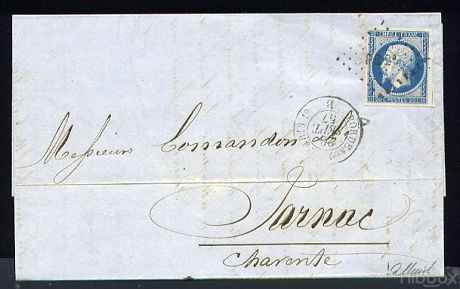 EMPIRE FRANC.
POSTES
BORDEAUX
SEPT.
57
Messieurs Comandon
Jarnac
Charente
hipbox